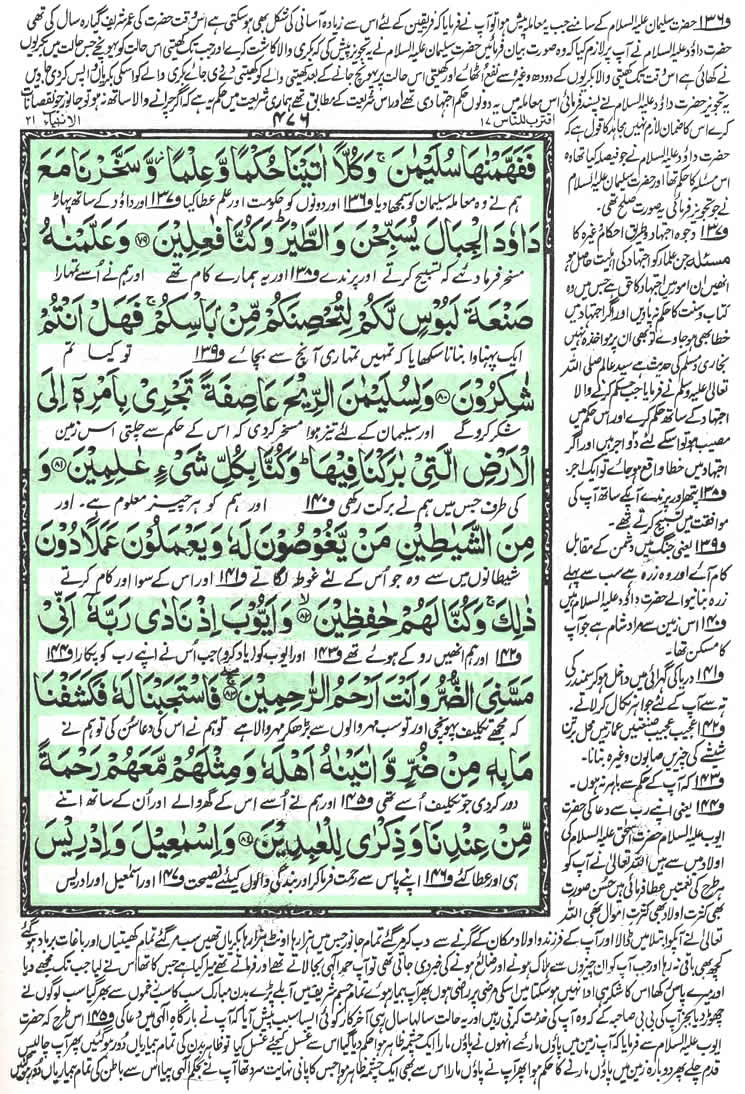 ف۱۳۶ حضرت سلیمان علیہ السلام کے سامنے جب یہ معاملہ پیش ہوا تو آپ نے فرمایا کہ فریقین کے لئے اس سے زیادہ آسانی کی شکل بھی ہوسکتی ہے اس وقت حضرت کی عمر شریف گیارہ سال کی تھی
حضرت داؤد علیہ السلام نے آپ پر لازم کیا کہ وہ صورت بیان فرمائیں حضرت سلیمان علیہ السلام نے یہ تجویز پیش کی کہ بکری والا کاشت کرے اور جب تک کھیتی اس حالت کو پہونچے جس حالت میں بکریوں
نے کھائی ہے اس وقت تک کھیتی والا بکریوں کے دودھ وغیرہ سے نفع اٹھائے اور کھیتی اس حالت پر پہونچ جانے کے بعد کھیتی والے کو کھیتی دے دی جائے بکری والے کو اس کی بکریاں واپس کردی جاویں
یہ تجویز حضرت داؤد علیہ السلام نے پسند فرمائی اس معاملہ میں یہ دونوں حکم اجتہادی تھے اور اس شریعت کے مطابق تھے ہماری شریعت میں حکم یہ ہے کہ اگر چرانے والا ساتھ نہ ہو تو جانور جو نقصانات
اقترب للناس ۱۷ ۴۷۶ الانبیاء ۲۱
کرے اس کا ضمان لازم نہیں مجاہد کا قول ہے کہ
حضرت داؤد علیہ السلام نے جو فیصلہ کیا تھا وہ
اس مسئلہ کا حکم تھا اور حضرت سلیمان علیہ السلام
نے جو تجویز فرمائی یہ صورت صلح تھی۔
ف۱۳۷ وجوہ اجتہاد و طریق احکام وغیرہ کا
مسئلہ جن علماء کو اجتہاد کی اہلیت حاصل ہو
انھیں ان امور میں اجتہاد کا حق ہے جس میں وہ
کتاب و سنت کا حکم نہ پاویں اور اگر اجتہاد میں
خطا بھی ہوجاوے تو بھی ان پر مواخذہ نہیں
بخاری و مسلم کی حدیث ہے سید عالم صلی اللہ
تعالیٰ علیہ وسلم نے فرمایا جب حکم کرنے والا
اجتہاد کے ساتھ حکم کرے اور اس حکم میں
مصیب ہو تو اسکے لئے دو اجر ہیں اور اگر
اجتہاد میں خطا واقع ہوجائے تو ایک اجر۔
ف۱۳۸ پتھر اور پرندے آپ کے ساتھ آپ کی
موافقت میں تسبیح کرتے تھے۔
ف۱۳۹ یعنی جنگ میں دشمن کے مقابل
کام آئے اور وہ زرہ ہے سب سے پہلے
زرہ بنانیوالے حضرت داؤد علیہ السلام ہیں
ف۱۴۰ اس زمین سے مراد شام ہے جو آپ
کا مسکن تھا۔
ف۱۴۱ دریا کی گہرائی میں داخل ہوکر سمندر کی
تہ سے آپ کے لئے جواہر نکال کر لاتے۔
ف۱۴۲ عجیب عجیب صنعتیں عمارتیں محل برتن
شیشے کی چیزیں صابون وغیرہ بنانا۔
ف۱۴۳ کہ آپ کے حکم سے باہر نہ ہوں۔
ف۱۴۴ یعنی اپنے رب سے دعا کی حضرت
ایوب علیہ السلام حضرت اسحٰق علیہ السلام کی
اولاد میں سے ہیں اللہ تعالیٰ نے آپ کو
ہر طرح کی نعمتیں عطا فرمائی ہیں حسن صورت
بھی کثرت اولاد بھی کثرت اموال بھی اللہ
فَفَهَّمْنٰهَا سُلَيْمٰنَ ۚ وَكُلًّا اٰتَيْنَا حُكْمًا وَّعِلْمًا ۡ وَّسَخَّرْنَا مَعَ
ہم نے وہ معاملہ سلیمان کو سمجھا دیا ف۱۳۶ اور دونوں کو حکومت اور علم عطا کیا ف۱۳۷ اور داؤد کے ساتھ پہاڑ
دَاوٗدَ الْجِبَالَ يُسَبِّحْنَ وَالطَّيْرَ ۭ وَكُنَّا فٰعِلِيْنَ ۷۹ وَعَلَّمْنٰهُ
مسخر فرما دئے کہ تسبیح کرتے اور پرندے ف۱۳۸ اور یہ ہمارے کام تھے اور ہم نے اُسے تمہارا
صَنْعَةَ لَبُوْسٍ لَّكُمْ لِتُحْصِنَكُمْ مِّنْۢ بَاْسِكُمْ ۚ فَهَلْ اَنْتُمْ
ایک پہناوا بنانا سکھایا کہ تمہیں تمہاری آنچ سے بچائے ف۱۳۹ تو کیا تم
شٰكِرُوْنَ ۸۰ وَلِسُلَيْمٰنَ الرِّيْحَ عَاصِفَةً تَجْرِيْ بِاَمْرِهٖٓ اِلَى
شکر کروگے اور سلیمان کے لئے تیز ہوا مسخر کردی کہ اس کے حکم سے چلتی اس زمین
الْاَرْضِ الَّتِيْ بٰرَكْنَا فِيْهَا ۭ وَكُنَّا بِكُلِّ شَيْءٍ عٰلِمِيْنَ ۸۱ وَ
کی طرف جس میں ہم نے برکت رکھی ف۱۴۰ اور ہم کو ہر چیز معلوم ہے۔ اور
مِنَ الشَّيٰطِيْنِ مَنْ يَّغُوْصُوْنَ لَهٗ وَيَعْمَلُوْنَ عَمَلًا دُوْنَ
شیطانوں میں سے وہ جو اُس کے لئے غوطہ لگاتے ف۱۴۱ اور اس کے سوا اور کام کرتے
ذٰلِكَ ۚ وَكُنَّا لَهُمْ حٰفِظِيْنَ ۸۲ وَاَيُّوْبَ اِذْ نَادٰى رَبَّهٗٓ اَنِّيْ
ف۱۴۲ اور ہم انھیں روکے ہوئے تھے ف۱۴۳ اور ایوب کو (یاد کرو) جب اُس نے اپنے رب کو پکارا ف۱۴۴
مَسَّنِيَ الضُّرُّ وَاَنْتَ اَرْحَمُ الرّٰحِمِيْنَ ۸۳ فَاسْتَجَبْنَا لَهٗ فَكَشَفْنَا
کہ مجھے تکلیف پہونچی اور تو سب مہر والوں سے بڑھ کر مہر والا ہے تو ہم نے اس کی دعا سُن لی تو ہم نے
مَا بِهٖ مِنْ ضُرٍّ وَّاٰتَيْنٰهُ اَهْلَهٗ وَمِثْلَهُمْ مَّعَهُمْ رَحْمَةً
دور کردی جو تکلیف اُسے تھی ف۱۴۵ اور ہم نے اُسے اس کے گھر والے اور اُن کے ساتھ اتنے
مِّنْ عِنْدِنَا وَذِكْرٰى لِلْعٰبِدِيْنَ ۸۴ وَاِسْمٰعِيْلَ وَاِدْرِيْسَ
ہی اور عطا کئے ف۱۴۶ اپنے پاس سے رحمت فرما کر اور بندگی والوں کیلئے نصیحت ف۱۴۷ اور اسمٰعیل اور ادریس
تعالیٰ نے آپکو ابتلا میں ڈالا اور آپ کے فرزند و اولاد مکان کے گرنے سے دب کر مر گئے تمام جانور جس میں ہزارہا اونٹ ہزارہا بکریاں تھیں سب مر گئے تمام کھیتیاں اور باغات برباد ہوگئے
کچھ بھی باقی نہ رہا اور جب آپ کو ان چیزوں کے ہلاک ہونے اور ضائع ہونے کی خبر دی جاتی تھی تو آپ حمد الٰہی بجا لاتے تھے اور فرماتے تھے میرا کیا ہے جس کا تھا اس نے لیا جب تک مجھے دیا
اور میرے پاس رکھا اس کا شکر ہی ادا نہیں ہوسکتا میں اسکی مرضی پر راضی ہوں پھر آپ بیمار ہوئے تمام جسم شریف میں آبلے پڑے بدن مبارک سب کا سب زخموں سے بھر گیا سب لوگوں نے
چھوڑ دیا بجز آپ کی بی بی صاحبہ کے کہ وہ آپ کی خدمت کرتی رہیں اور یہ حالت سالہا سال رہی آخر کار کوئی ایسا سبب پیش آیا کہ آپ نے بارگاہ الٰہی میں دعا کی ف۱۴۵ اس طرح کہ حضرت
ایوب علیہ السلام سے فرمایا کہ آپ زمین میں پاؤں مارئیے انہوں نے پاؤں مارا ایک چشمہ ظاہر ہوا حکم دیا گیا اس سے غسل کیجئے غسل کیا تو ظاہر بدن کی تمام بیماریاں دور ہوگئیں پھر آپ چالیس
قدم چلے پھر دوبارہ زمین میں پاؤں مارنے کا حکم ہوا پھر آپ نے پاؤں مارا اس سے بھی ایک چشمہ ظاہر ہوا جس کا پانی نہایت سرد تھا آپ نے بحکم الٰہی پیا اس سے باطن کی تمام بیماریاں دور ہوئیں